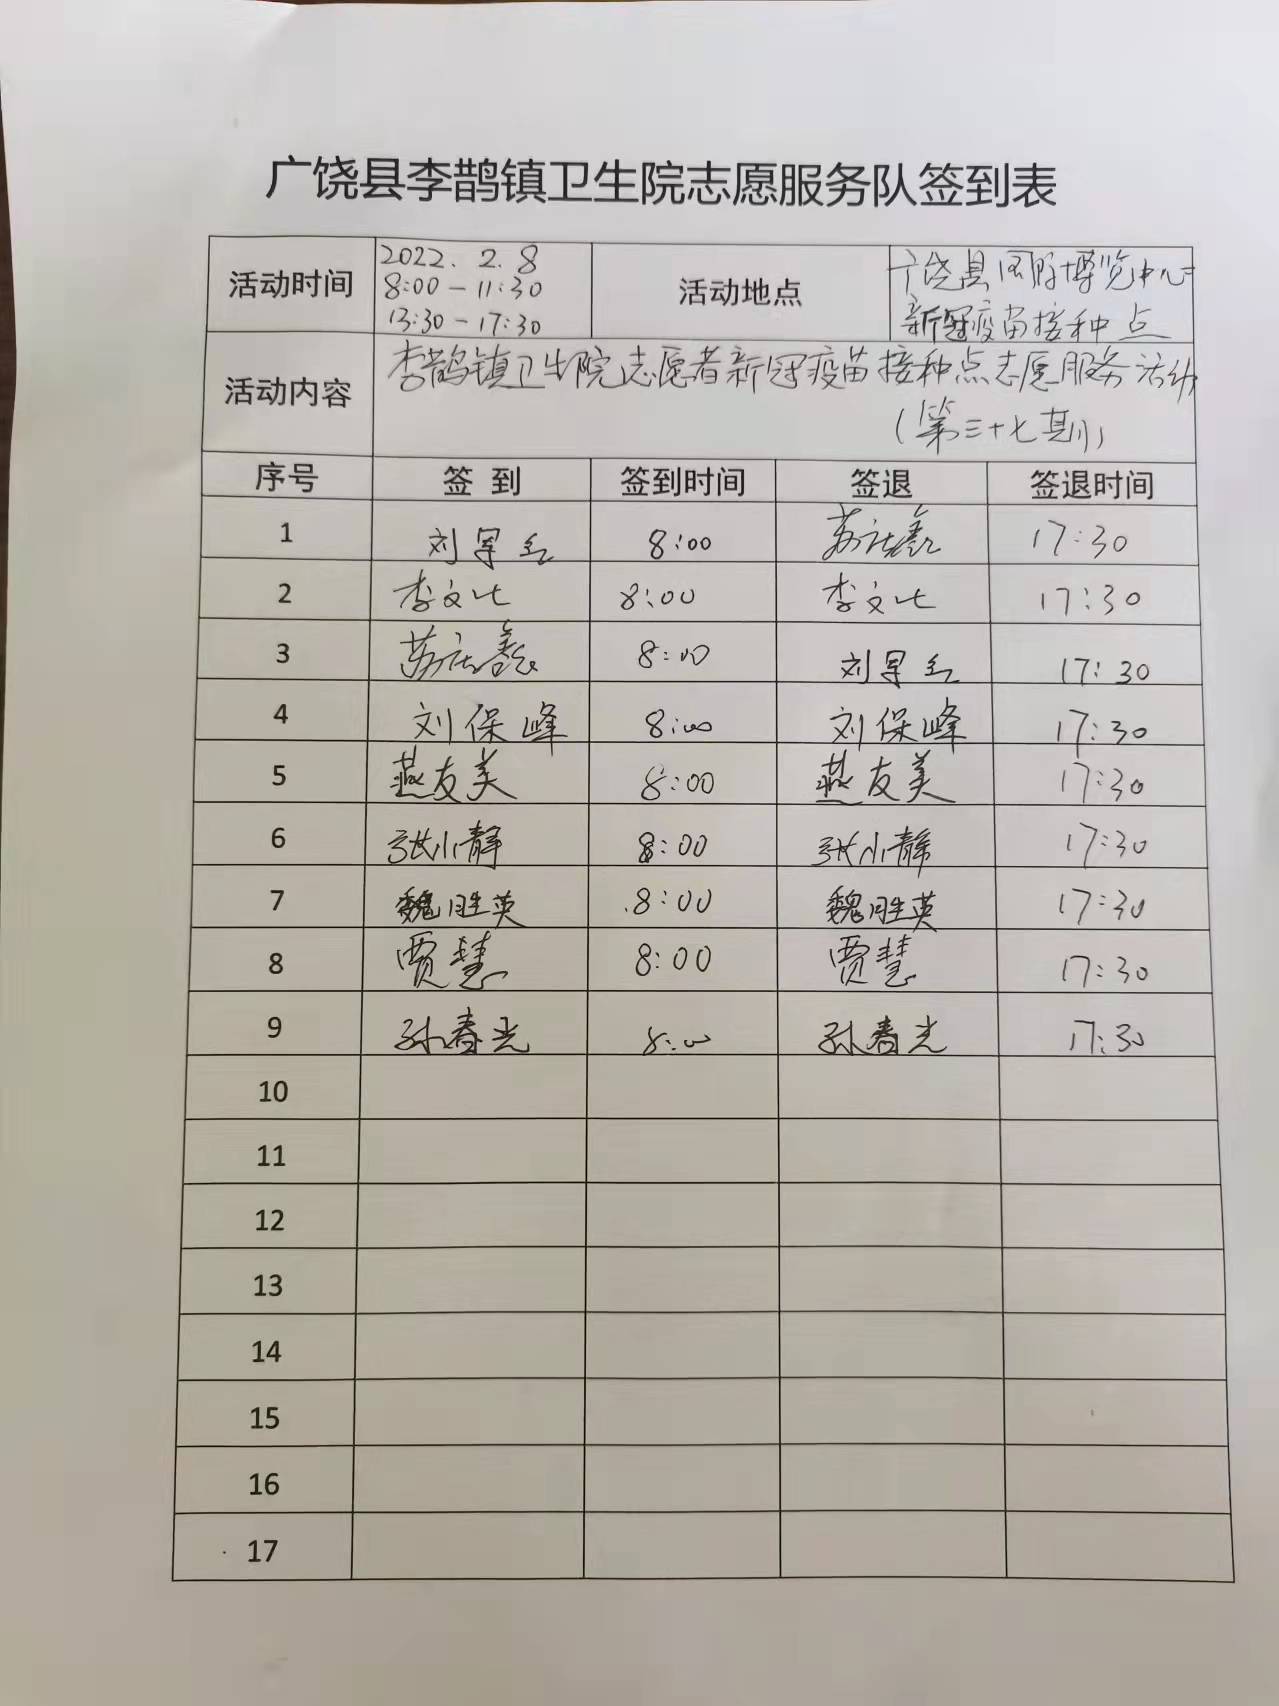 广饶县李鹊镇卫生院志愿服务队签到表
活动时间 2022.2.8 8:00-11:30 13:30-17:30 活动地点 广饶县国际博览中心新冠疫苗接种点
活动内容 李鹊镇卫生院志愿者新冠疫苗接种点志愿服务活动
(第三十七期)
序号 签到 签到时间 签退 签退时间
1 8:00 17:30
2 李文化 8:00 李文化 17:30
3 8:00 17:30
4 刘保峰 8:00 刘保峰 17:30
5 燕友美 8:00 燕友美 17:30
6 张小静 8:00 张小静 17:30
7 魏胜英 8:00 魏胜英 17:30
8 贾慧 8:00 贾慧 17:30
9 孙春光 8:00 孙春光 17:30
10
11
12
13
14
15
16
17